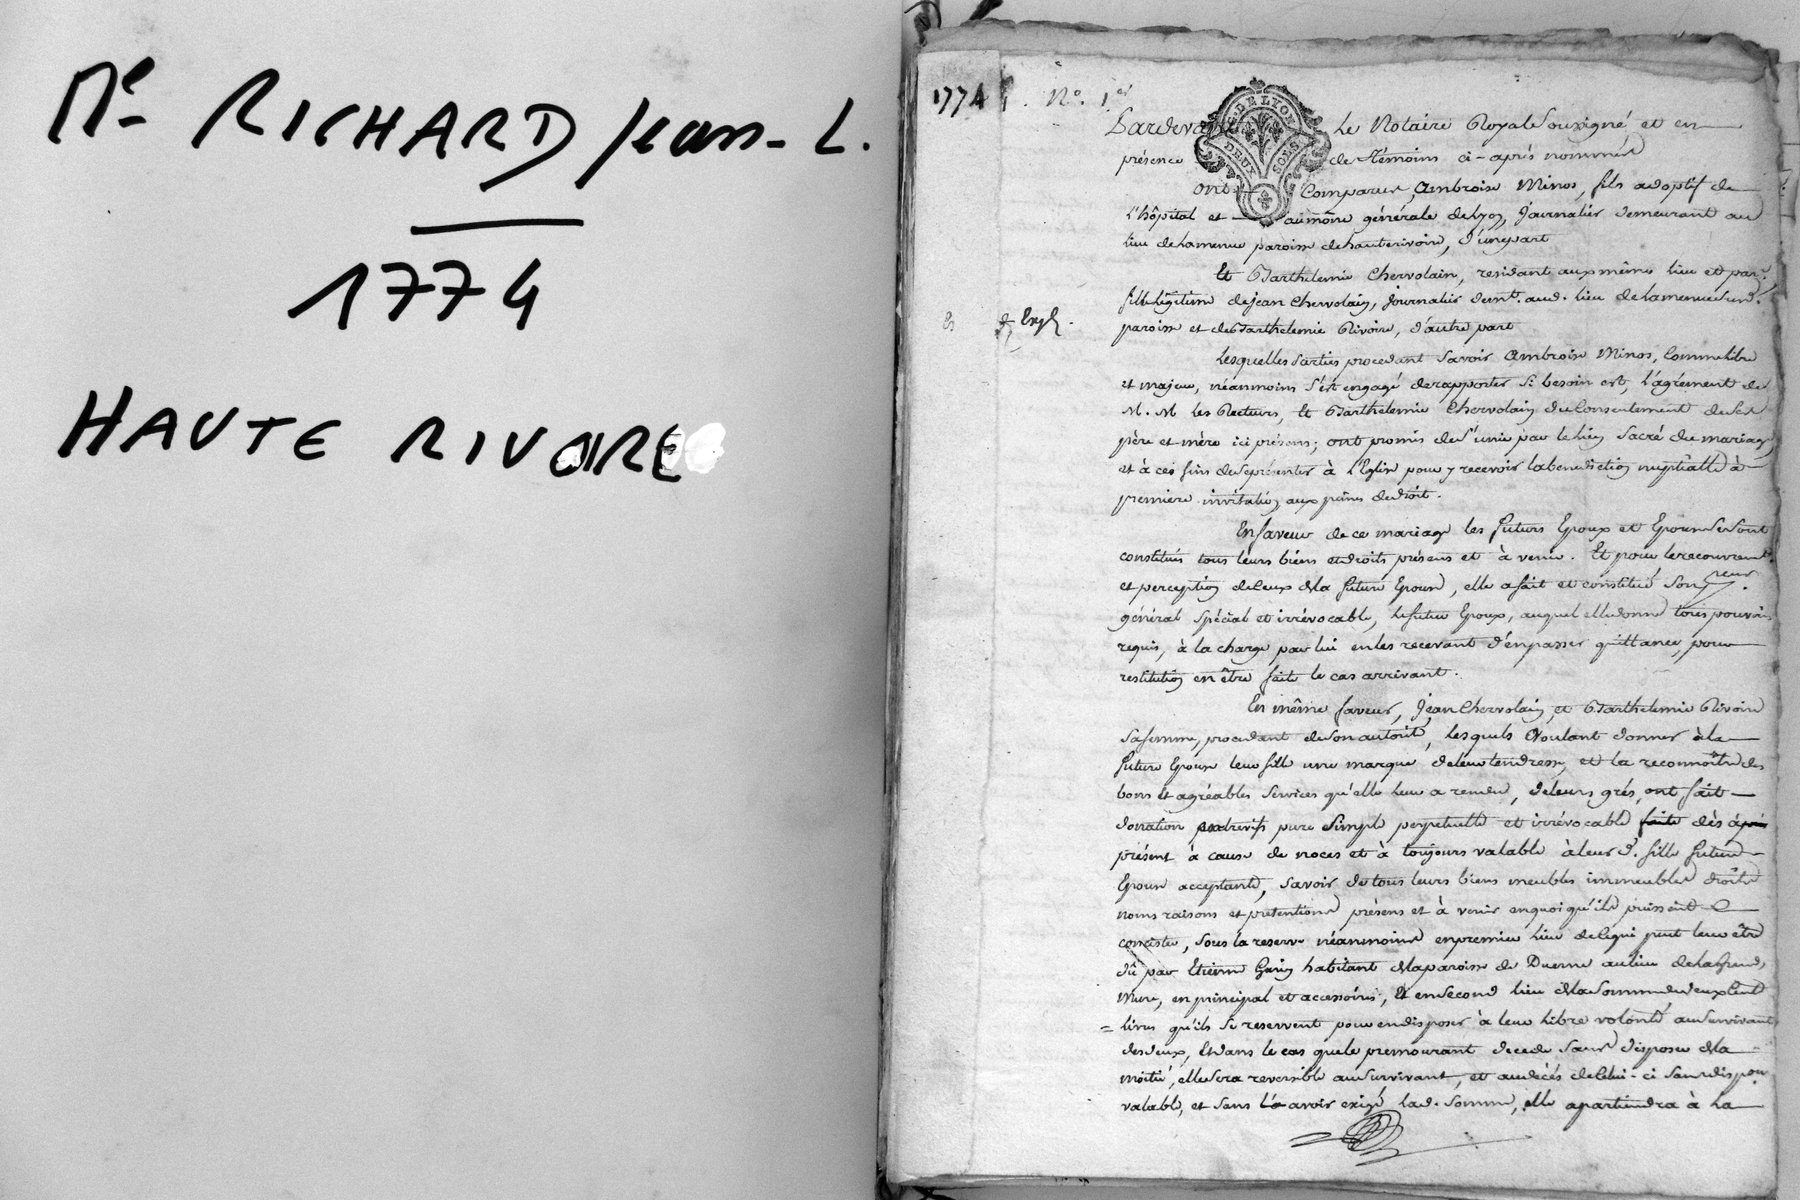 Me RICHARD Jean-L.
1774
HAUTE RIVOIRE
1774 1. No. 1er
G. DE LYON
DEUX SOLS
Pardevant Le Notaire Royal Soussigné et en
présence de témoins ci-après nommés
ont Comparus, Ambroise Minos, fils adoptif de
l'hôpital et aumône générale de Lyon, Journalier demeurant au
lieu de lamenue paroisse de hauterivoire, d'une part
Et Barthelemie Chervolain, residant aux même lieu et par.
fille légitime de jean Chervolain, Journalier demt. aud. lieu de lamenue Susd.
Expé.
paroisse et de Barthelemie Rivoire, d'autre part
Lesquelles Parties procedant Savoir Ambroise Minos, Comme libre
et majeur, néanmoins s'est engagé de rapporter Si besoin est, l'agrément de
M. M les Recteurs, Et Barthelemie Chervolain du Consentement de Ses
père et mère ici présens; ont promis de S'unir par le lien Sacré du mariage,
et à ces fins de Se présenter à l'Eglise pour y recevoir la benediction nuptialle à
premiere invitation aux peines de droit.
En faveur de ce mariage les futurs Epoux et Epouse Se Sont
constitués tous leurs biens et droits présens et à venir. Et pour le recouvremt.
et perception de Ceux de la future Epouse, elle a fait et constitué Son preur.
général Spécial et irrévocable, le futur Epoux, auquel elle donne tous pouvoirs
requis, à la charge par lui en les recevant d'en passer quittance, pour
restitution en être faite le cas arrivant.
En même faveur, Jean Chervolain, et Barthelemie Rivoire
Sa femme, procedant de Son autorité, lesquels Voulant donner à la
future Epouse leur fille une marque de leur tendresse, et la reconnoître des
bons et agréables Services qu'elle leur a rendu, de leurs grés, ont fait
donation pure Simple perpetuelle et irrévocable faite dès à
présent à cause de noces et à toujours valable à leur d. fille future
Epouse acceptante, Savoir de tous leurs biens meubles immeubles droits
noms raisons et pretentions présens et à venir en quoi qu'ils puissent
consister, Sous la reserve néanmoins en premier lieu de Ce qui peut leur être
dû par Etienne Guin habitant de la paroisse de Duerne au lieu de
Mure, en principal et accessoires; Et en Second lieu de la Somme deux Cent
livres qu'ils Se reservent pour en disposer à leur libre volonté au Survivant
des deux, Et dans le cas que le premourant decede Sans disposer de la
moitié, elle Sera reversible au Survivant, et au décés de Celui-ci Sans dispon.
valable, et Sans l'avoir exigé lad. Somme, elle apartiendra à la